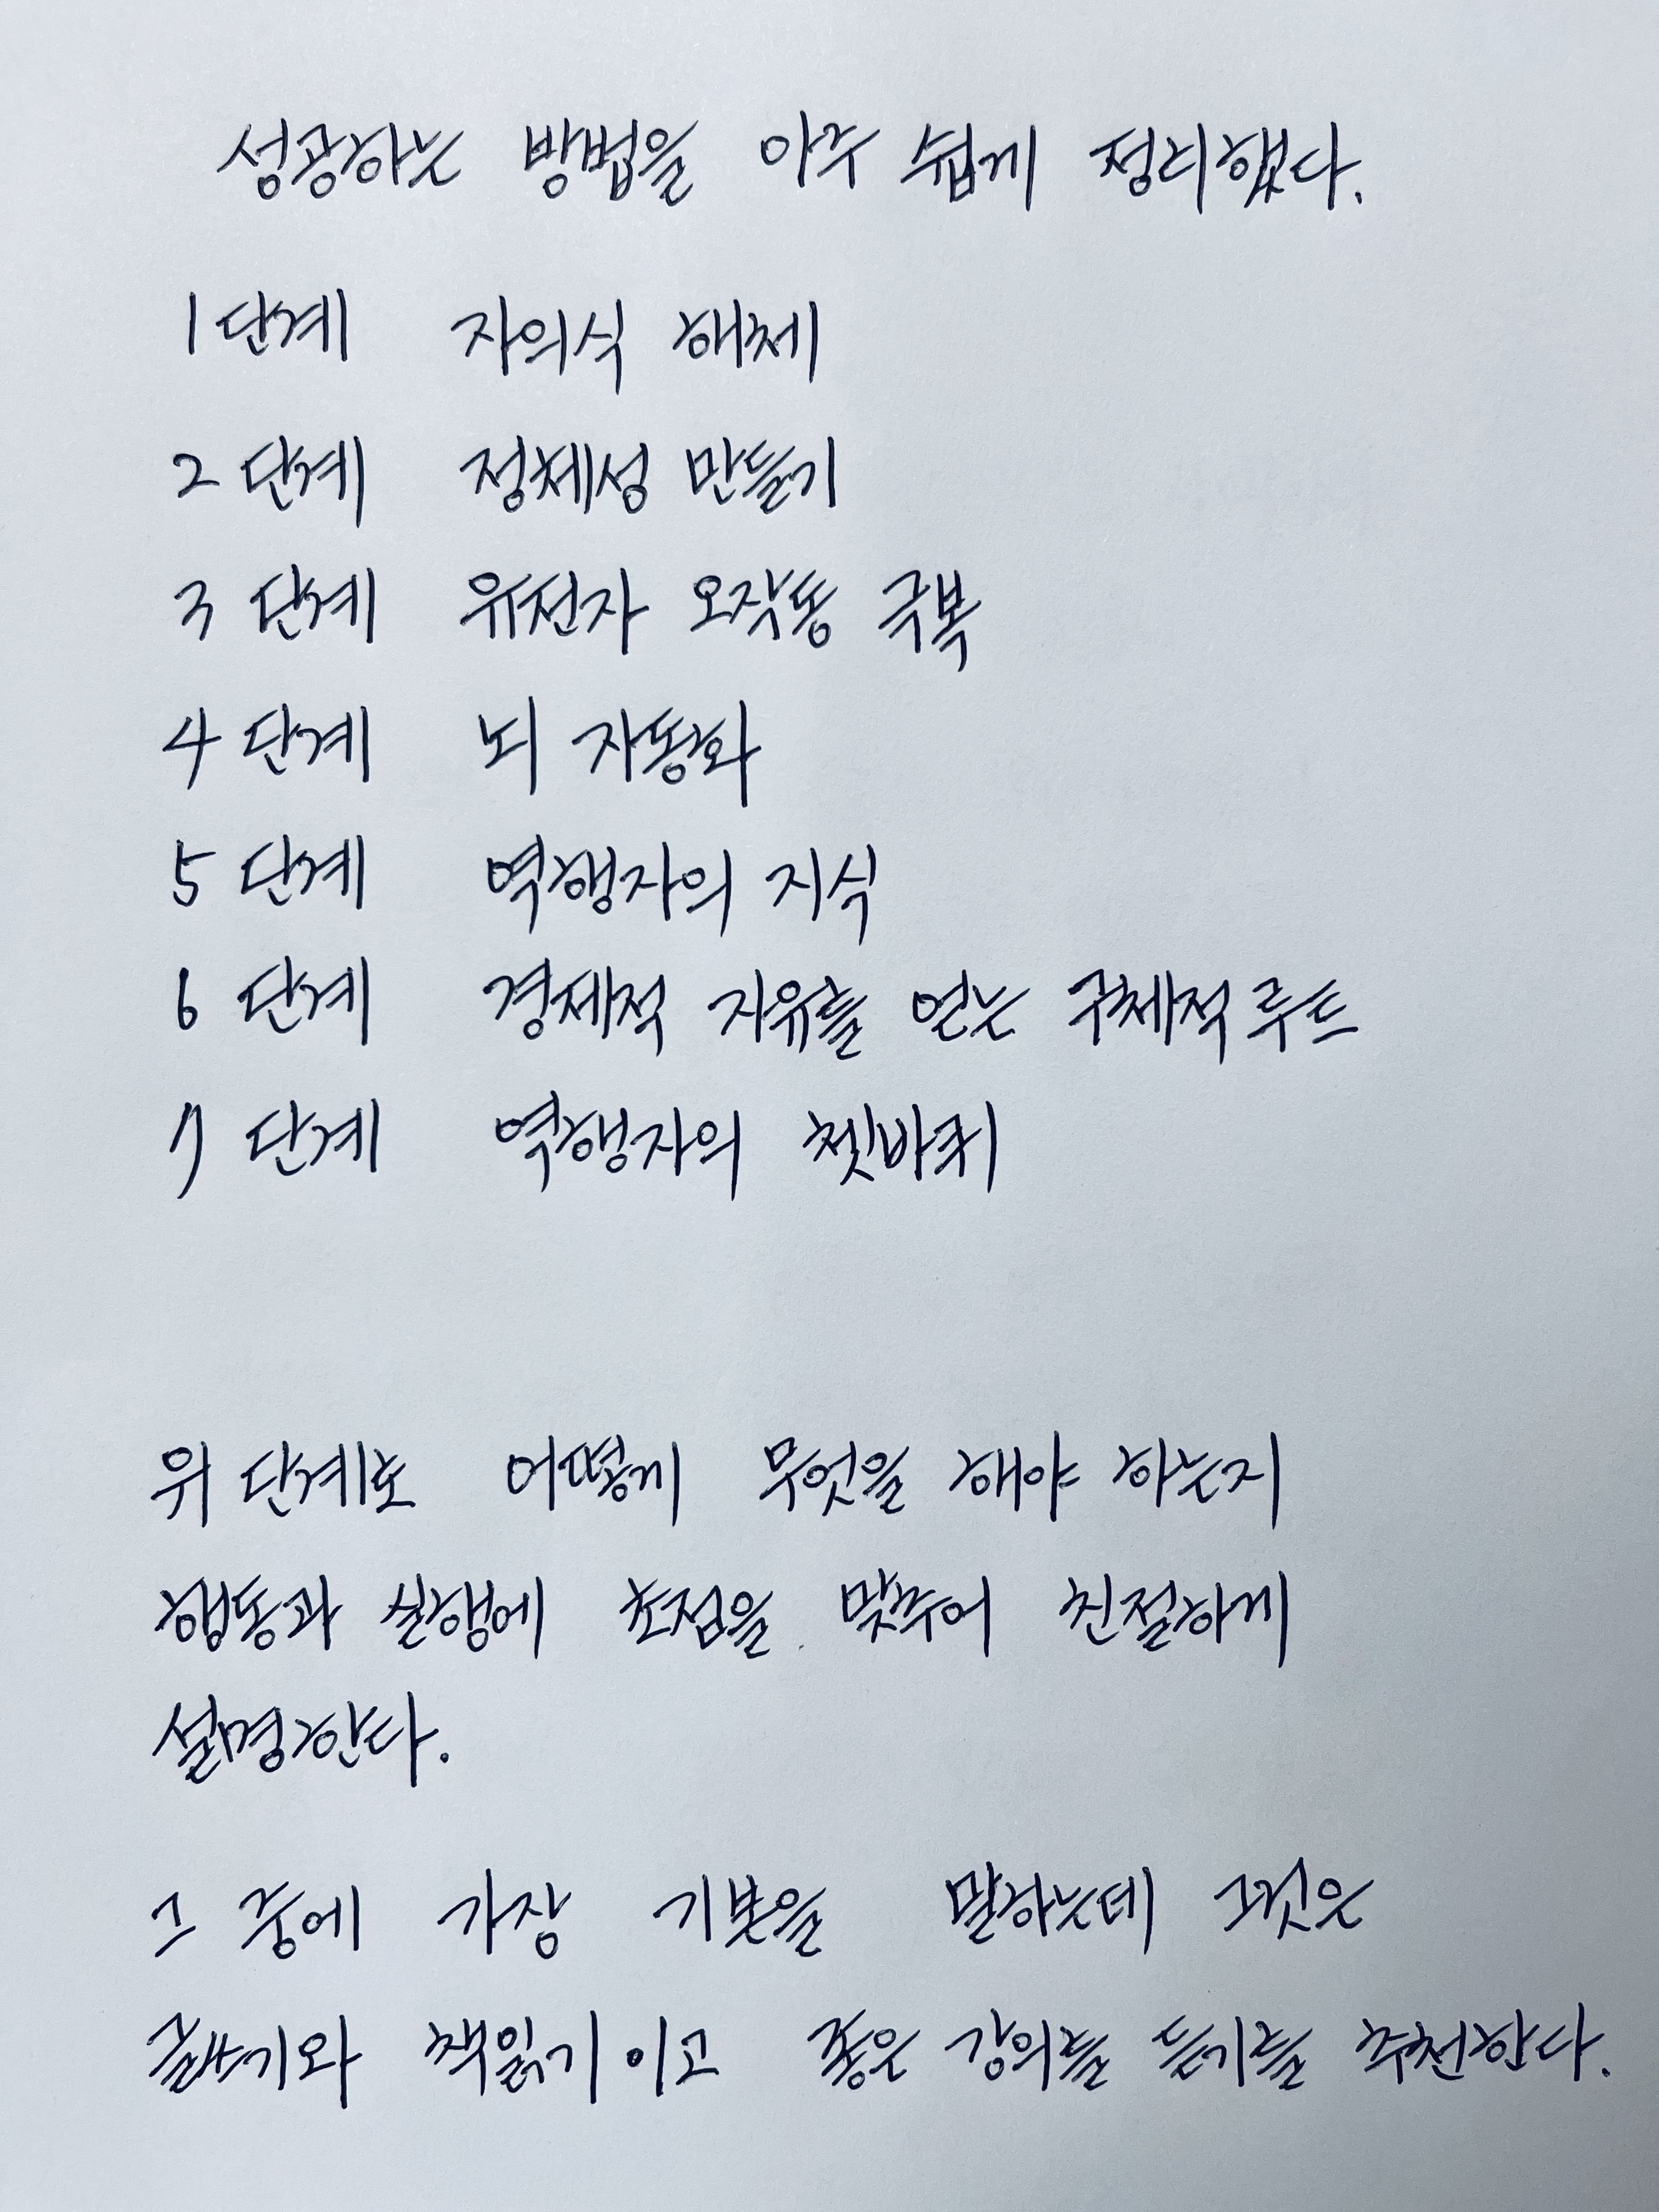 성공하는 방법을 아주 쉽게 정리했다.
1단계 자의식 해체
2단계 정체성 만들기
3단계 유전자 오작동 극복
4단계 뇌 자동화
5단계 역행자의 지식
6단계 경제적 자유를 얻는 구체적 루트
7단계 역행자의 쳇바퀴
위 단계로 어떻게 무엇을 해야 하는지
행동과 실행에 초점을 맞추어 친절하게
설명한다.
그 중에 가장 기본을 말하는데 그것은
글쓰기와 책읽기 이고 좋은 강의를 듣기를 추천한다.